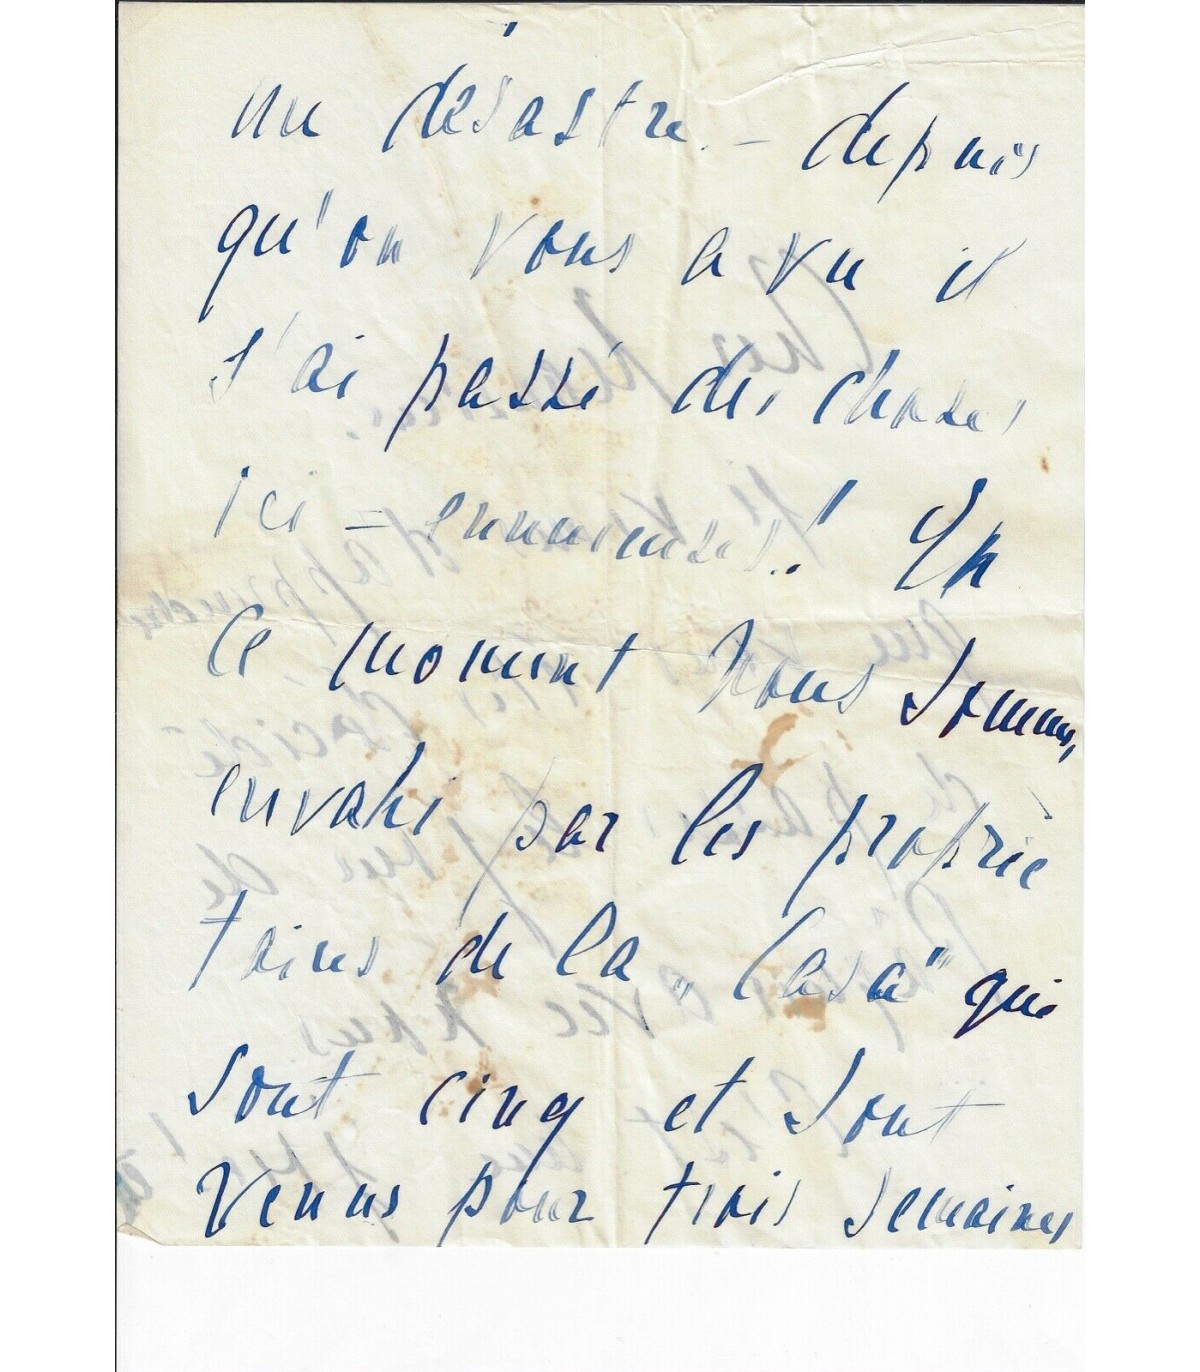 un désastre. – depuis
qu'on vous a vu il
s'ai passé des choses
ici – ennuieuses! En
ce moment nous sommes
envahi par les proprié
taires de la „Casa" qui
sont cinq et sont
venus pour trois semaines